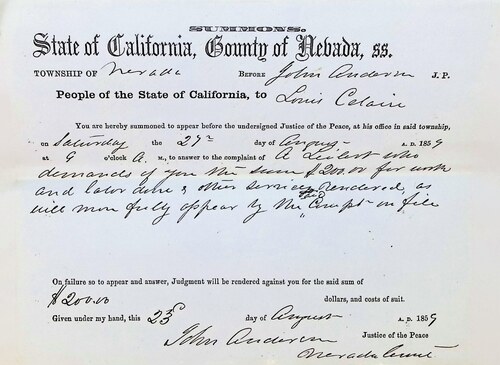 SUMMONS.
State of California, County of Nevada, ss.
TOWNSHIP OF Nevada BEFORE John Anderson J. P.
People of the State of California, to Louis
You are hereby summoned to appear before the undersigned Justice of the Peace, at his office in said township,
on Saturday the 27th day of August A. D. 1859
at 9 o'clock A. M., to answer to the complaint of A who
demands of you the sum $200.00 for work
and labor done & other services rendered, as
will more fully appear by the Compt on file
On failure so to appear and answer, Judgment will be rendered against you for the said sum of
$200.00 dollars, and costs of suit.
Given under my hand, this 23d day of August A. D. 1859
John Anderson Justice of the Peace
Nevada County